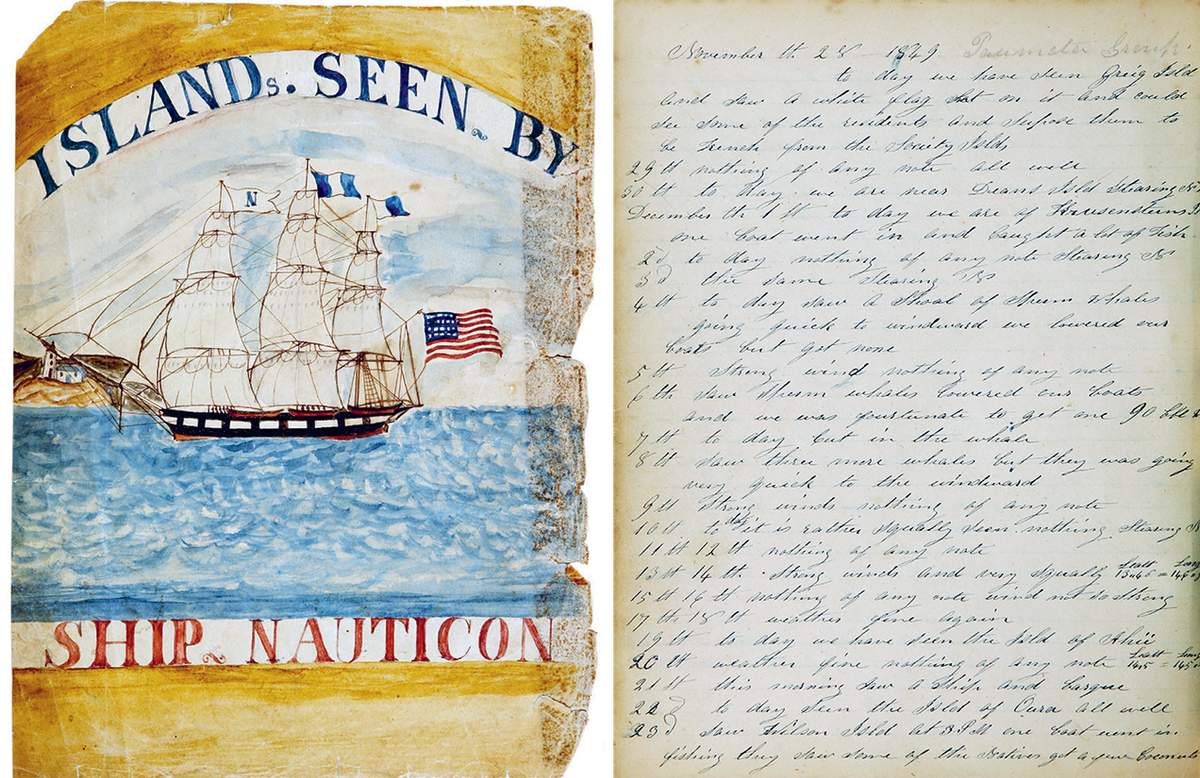 ISLANDs. SEEN. BY
N
SHIP. NAUTICON
November th 28 — 1849 Paumotu Group
to day we have seen Greig Isld
and saw a white flag set on it and could
see some of the residents and supose them to
be French from the Society Islds
29 th nothing of any note all well
30 th to day we are near Deans Isld Stearing
December th 1 st to day we are of Krusensterns
one boat went in and caught a lot of Fish
2d to day nothing of any note Stearing
3d the same Stearing
4 th to day saw a Shoal of Sperm whales
going quick to windward we lowered our
boats but got none
5 th Strong wind nothing of any note
6 th saw Sperm whales lowered our boats
and we was furtunate to get one 90
7 th to day cut in the whale
8 th saw three more whales but they was going
very quick to the windward
9 th Strong winds nothing of any note
10 th to day it is rather squally seen nothing Stearing
11 th 12 th nothing of any note
13 th 14 th Strong winds and very squally Latt Long
15 th 16 th nothing of any note wind not so strong
17 th 18 th weather fine again
19 th to day we have seen the Isld of
20 th weather fine nothing of any note Latt Long
21 st this morning saw a Ship and barque
22d to day seen the Isld of Oura all well
23d saw Wilson Isld at 3 PM one boat went in
fishing they saw some of the Natives got a few Coconuts